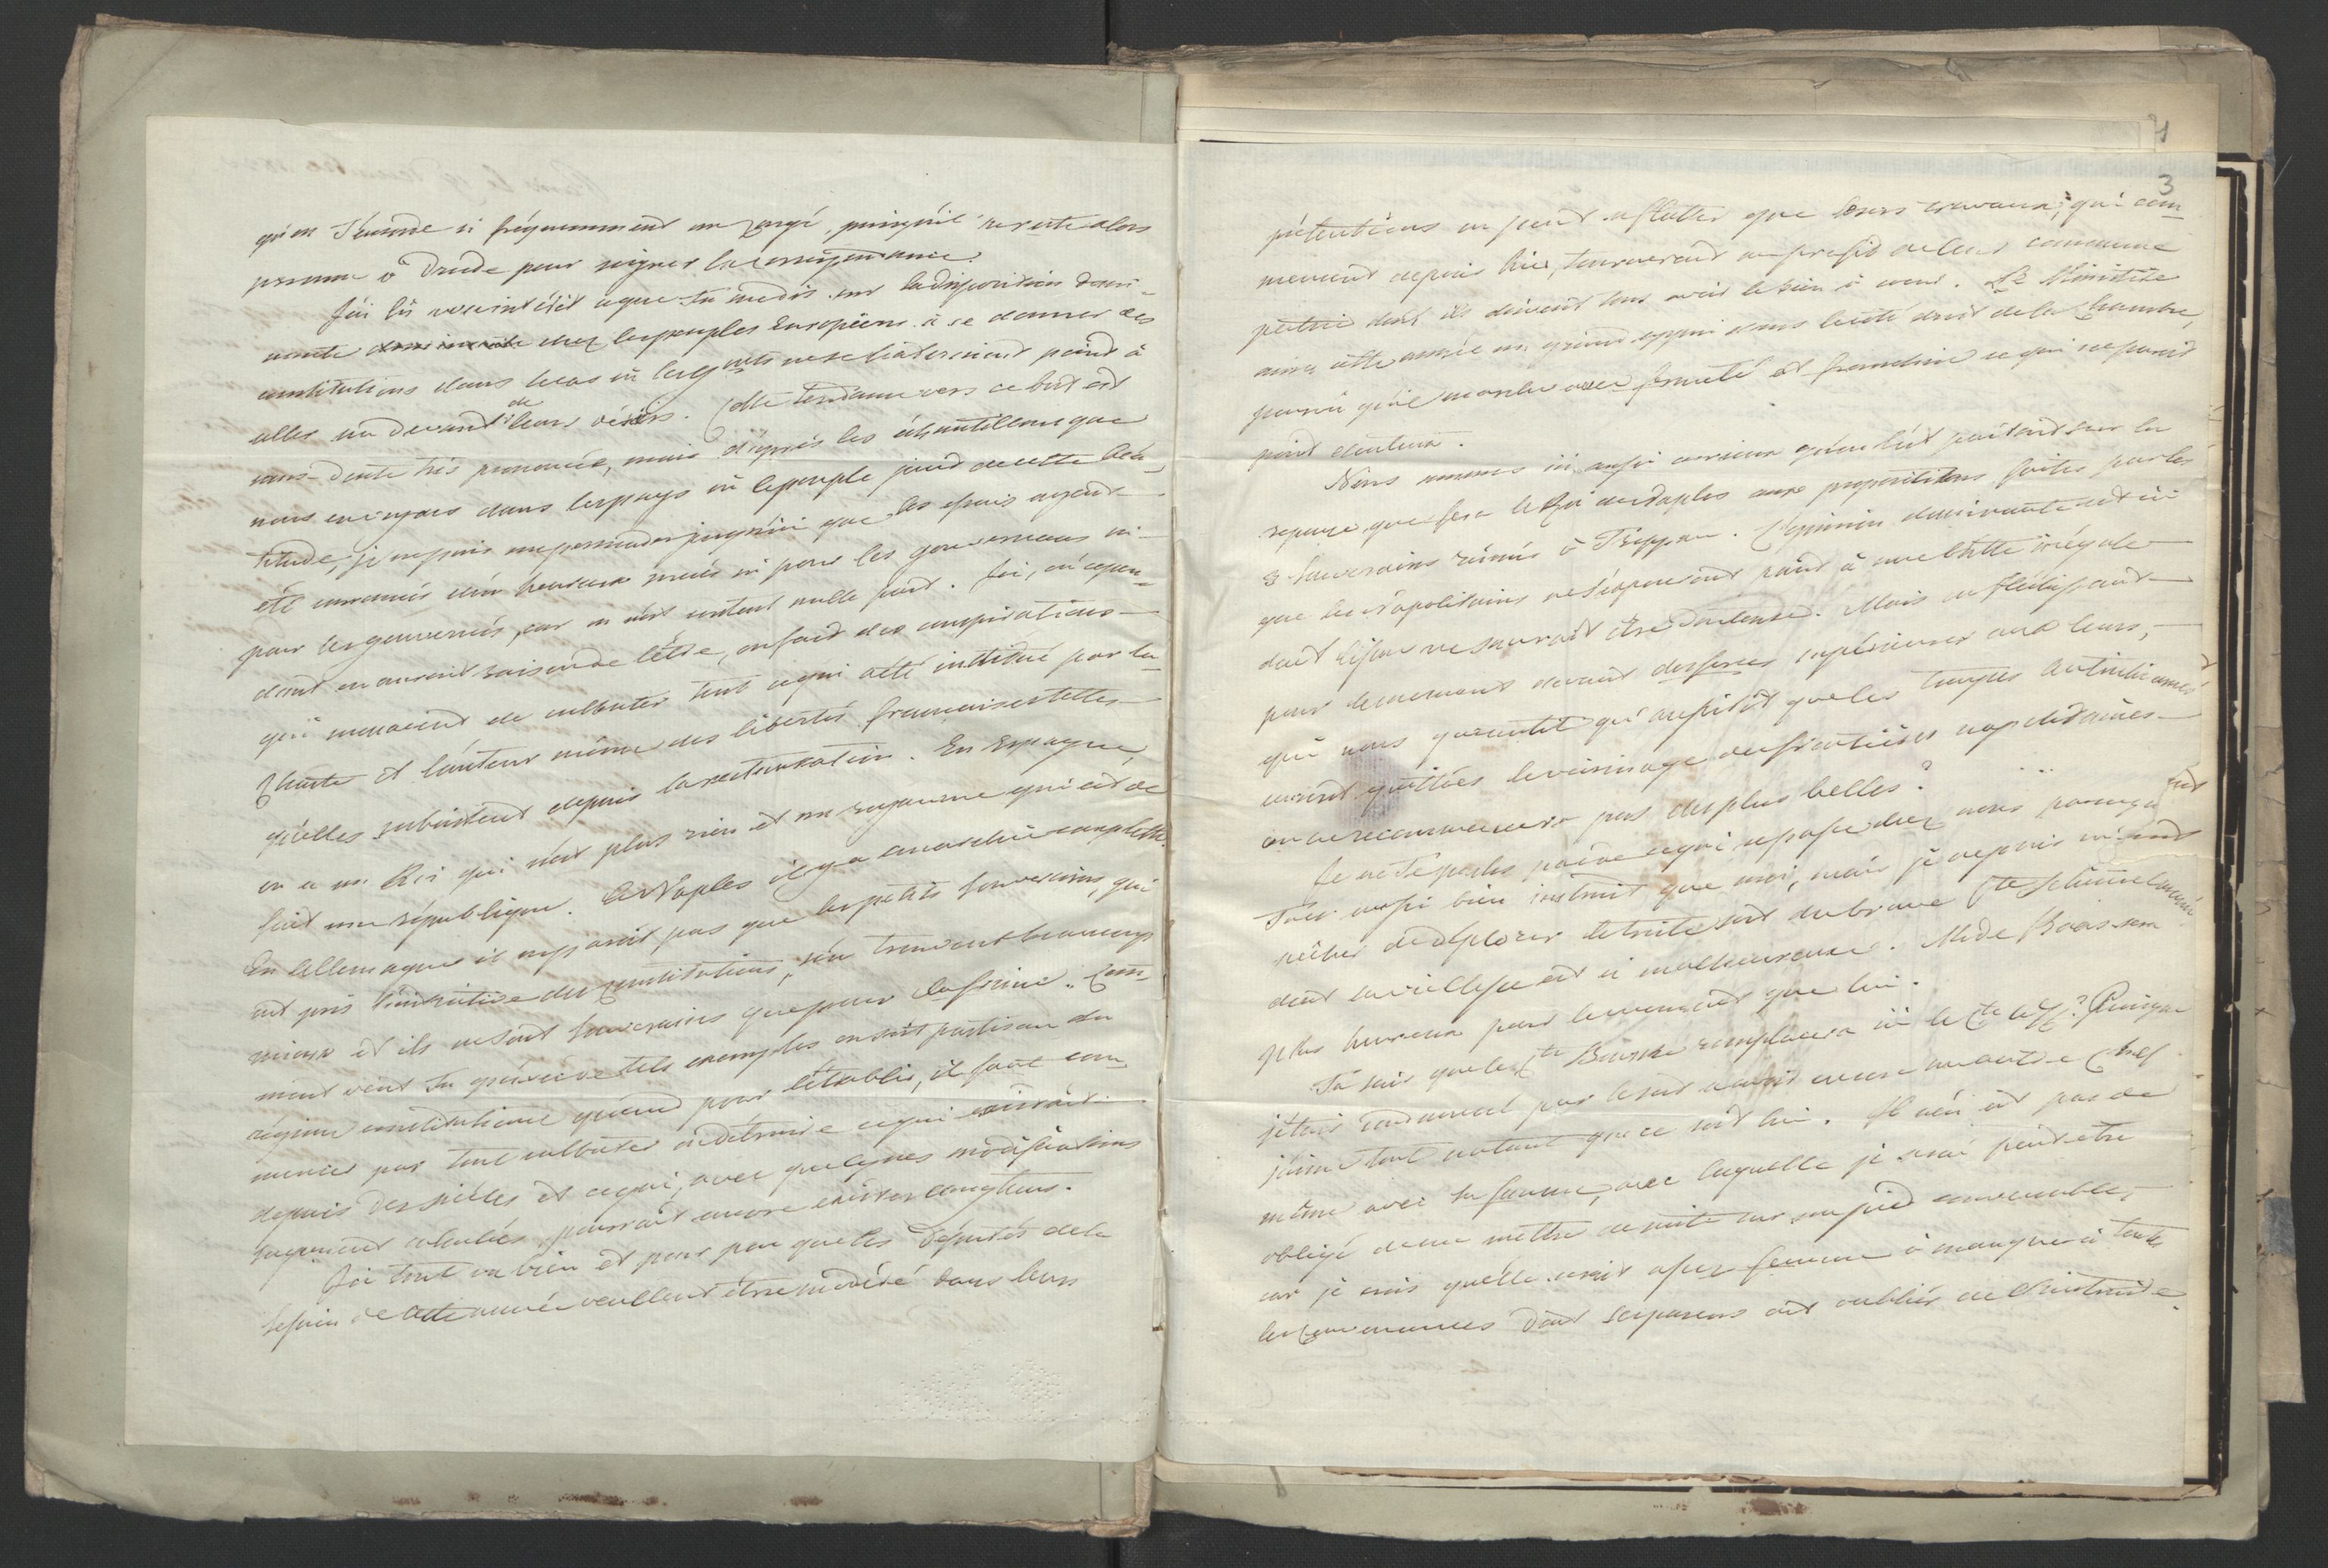 qu'on t'accorde si fréquemment un congé, puisqu'il ne reste alors
personne à Dresde pour soigner la correspondance.
J'ai lu avec intérêt ce que tu me dis sur la disposition domi-
nante chez les peuples Européens à se donner des
constitutions dans le cas où les gouvts ne se hâteraient point à
aller au devant de leurs désirs. Cette tendance vers ce but est
sans-doute très prononcée, mais d'après les échantillons que
nous en voyons dans les pays où le peuple jouit de cette béa-
titude, je ne puis me persuader jusqu'ici que les essais ayent
été couronnés d'un heureux succès ni pour les gouverneurs ni
pour les gouvernés, car on n'est content nulle part. Ici, où cepen-
dant on auroit raison de l'être, on fait des conspirations
qui menacent de culbuter tout ce qui a été institué par la
Charte et l'auteur même des libertés françaises telles
qu'elles subsistent depuis la restauration. En Espagne,
on a un Roi qui n'est plus rien et un royaume qui est de
fait une république. A Naples il y a anarchie complette.
En Allemagne il ne paroit pas que les petits souverains, qui
ont pris l'initiative des constitutions, s'en trouvent beaucoup
mieux et ils ne sont souverains que pour la frime. Com-
ment veux tu qu'avec de tels exemples on soit partisan du
régime constitutionel quand pour l'établir, il faut com-
mencer par tout culbuter et détruire ce qui existait
depuis des siècles et ce qui, avec quelques modifications
sagement calculées, pourrait encore exister longtems.
Ici tout va bien et pour peu que les Députés de la
session de cette année veuillent être modéré dans leurs
71
3
prétentions on peut se flatter que leurs travaux, qui com-
mencent depuis hier, tourneront au profit de leur commune
patrie dont ils doivent tous avoir le bien à coeur. Le Ministère
aura cette année un grand appui dans le côté droit de la Chambre,
pourvu qu'il marche avec fermeté et franchise ce qui ne paroit
point douteux.
Nous sommes ici aussi curieux qu'on l'est partout sur la
réponse que fera le Roi de Naples aux propositions faites par les
3 Souverains réunis à Troppau. L'opinion dominante est ici
que les Napolitains ne s'exposeront point à une lutte inégale
dont l'issue ne sauroit être douteuse. Mais en fléchissant
pour le moment devant des forces supérieures aux leurs,
qui nous garantit qu'aussitôt que les troupes Autrichiennes
auront quittées le voisinage des frontières napolitaines
on ne recommencera pas des plus belles?
Je ne te parle point de ce qui se passe chez nous puisque
tu es aussi bien instruit que moi, mais je ne puis m'em-
pêcher de déplorer le triste sort du brave Cte Schimmelmann
dont la vieillesse est si malheureuse. Mr de Kaas sera
plus heureux pour le moment que lui.
Tu sais que le Cte remplacera ici le Cte de ? Puisque
j'étais condamné par le sort à avoir encore un autre Chef
j'aime tout autant que ce soit lui. Il n'en est pas de
même avec sa femme, avec laquelle je serai peut-être
obligé de me mettre de suite sur un pied convenable,
car je crois qu'elle serait assez femme à manquer à toutes
les convenances dont ses parens ont oubliés de l'instruire.